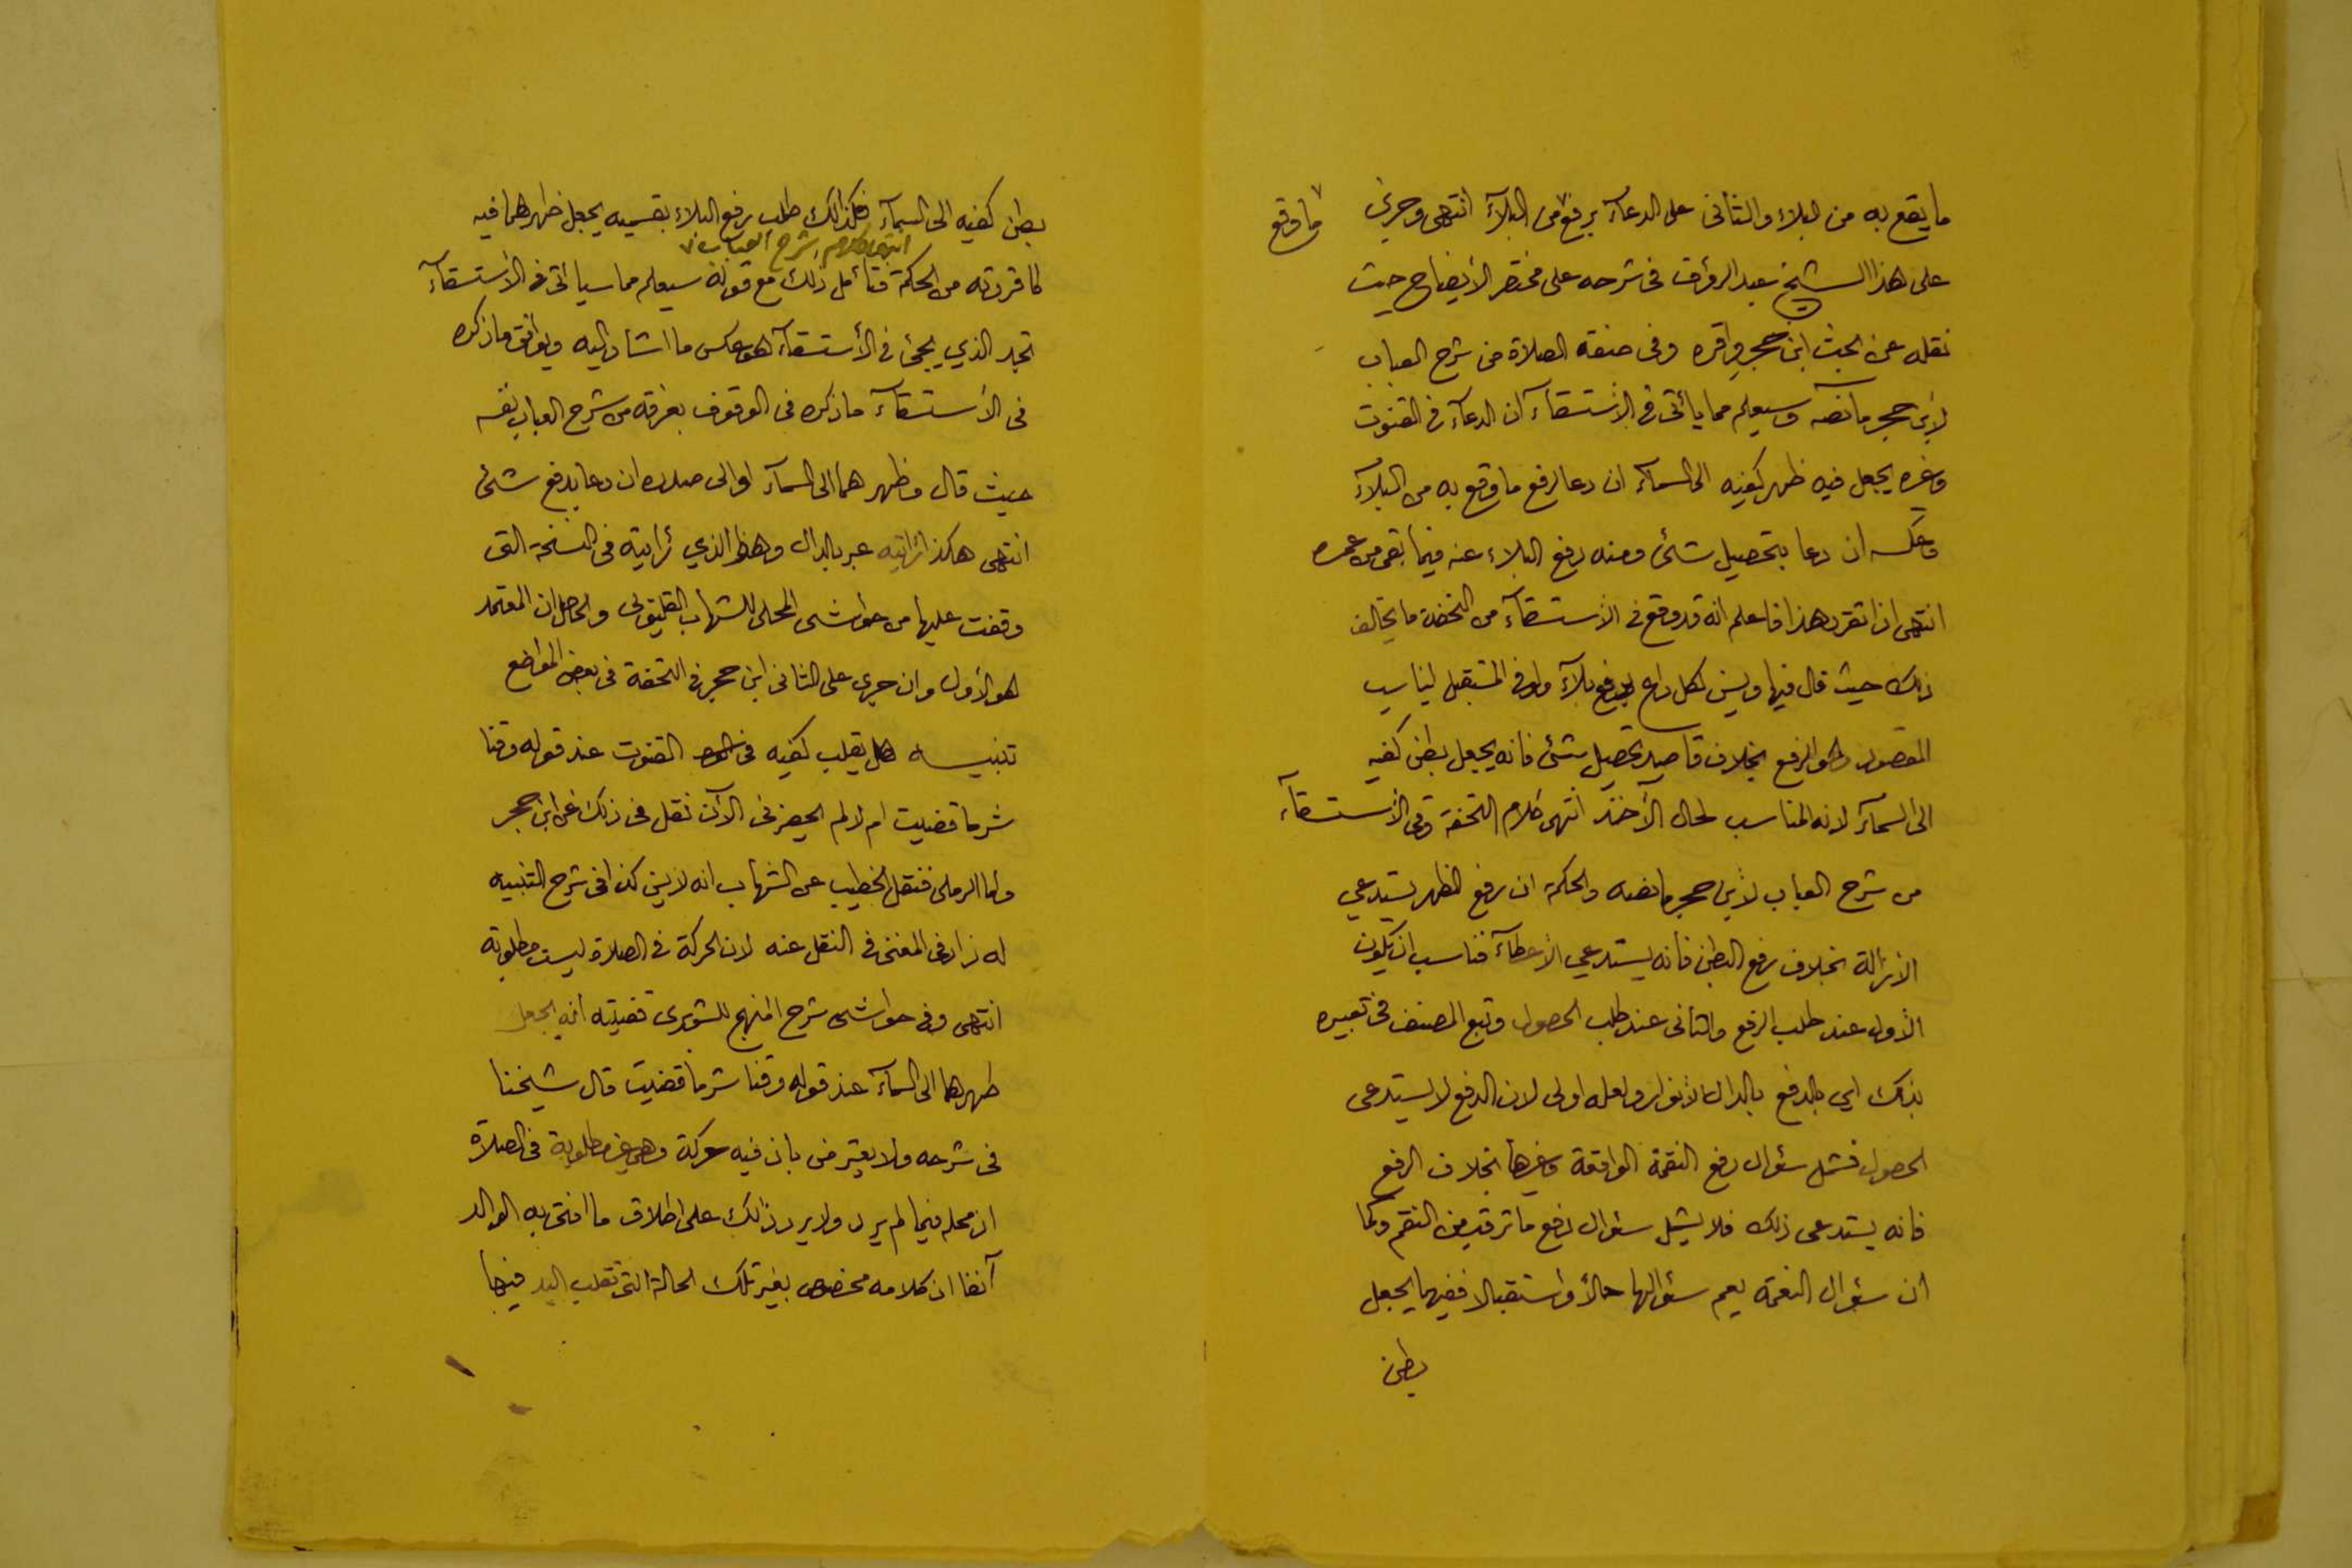 ما يقع به من البلاء والثانى على الدعآء برفع من البلآء انتهى وجرى
ما وقع
على هذا الشيخ عبد الرؤف فى شرحه على مختصر الأيضاح حيث
نقله عن بحث ابن حجر واقره وفى صفة الصلاة من شرح العباب
لابن حجر ما نصه وسيعلم مما يأتى فى الاستسقآء ان الدعآء فى القنوت
وغيره يجعل فيه ظهر كفيه الى السمآء ان دعا لرفع ما وقع به من البلآء
وعكسه ان دعا بتحصيل شئ ومنه دفع البلاء عنه فيما بقى من عمره
انتهى اذا تقرر هذا فاعلم انه قد وقع فى الاستسقآء من التحفة ما يخالف
ذلك حيث قال فيها ويسن لكل داع لرفع بلآء ولو فى المستقبل ليناسب
المقصود وهو الرفع بخلاف قاصد تحصيل شئ فانه يجعل بطن كفيه
الى السمآء لانه المناسب لحال الآخذ انتهى كلام التحفة وفى الأستسقآء
من شرح العباب لأبن حجر ما نصه والحكمة ان رفع الظهر يستدعي
الازالة بخلاف رفع البطن فأنه يستدعي الأعطآء فناسب ان يكون
الأول عند طلب الرفع والثانى عند طلب الحصول وتبع المصنف فى تعبيره
بذلك اي بالدفع بالدال الأنوار ولعله اولى لان الدفع لا يستدعى
الحصول فشمل سؤال رفع النقمة الواقعة وغيرها بخلاف الرفع
فانه يستدعى ذلك فلا يشمل سؤال دفع ما ترقب من النقم وكما
ان سؤال النعمة يعم سؤالها حالاً واستقبالا ففيهما يجعل
بطن
بطن كفيه الى السمآء فكذالك طلب رفع البلاء بقسميه يجعل ظهرهما فيه
انتهى كلام شرح العباب
لما قررته من الحكمة فتأمل ذلك مع قوله سيعلم مما سيأتى فى الاستسقآء
تجد الذي يجئ فى الأستسقآء هو عكس ما اشار اليه ويوافق ما ذكره
فى الأستسقآء ما ذكره فى الوقوف بعرفة من شرح العباب نفسه
حيث قال وظهرهما الى السمآء او الى صدره ان دعا بدفع شئ
انتهى هكذا رأيته عبر بالدال وهذا الذي رأيته فى النسخة التى
وقفت عليها من حواشى المحلى للشهاب القليوبى والحاصل ان المعتمد
هو الأول وان جرى على الثانى ابن حجر فى التحفة فى بعض المواضع
تنبيه هل يقلب كفيه فى القنوت عند قوله وقنا
شر ما قضيت ام لا لم يحضرنى الآن نقل فى ذلك عن ابن حجر
واما الرملى فنقل الخطيب عن الشهاب انه لا يسن كذا فى شرح التنبيه
له زاد فى المغنى فى النقل عنه لان الحركة فى الصلاة ليست مطلوبة
انتهى وفى حواشى شرح المنهج للشوبرى قضيته انه يجعل
ظهرهما الى السمآء عند قوله وقنا شر ما قضيت قال شيخنا
فى شرحه ولا يعترض بان فيه حركة وهى غير مطلوبة فى الصلاة
اذ محله فيما لم يرد ولا يرد ذالك على اطلاق ما افتى به الوالد
آنفا اذ كلامه مخصوص بغير تلك الحالة التى تقلب اليد فيها